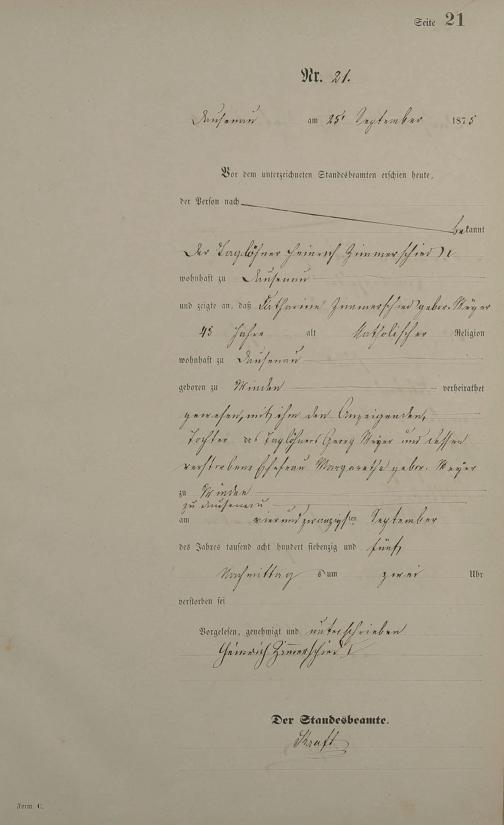 Seite 21
Nr. 21.
Dausenau am 25t September 1875
Vor dem unterzeichneten Standesbeamten erschien heute,
der Person nach
bekannt
der Taglöhner Heinrich Zimmerschied I
wohnhaft zu Dausenau
und zeigte an, daß Katharine Zimmerschied gebor. Meyer
43 Jahre alt Katholischer Religion
wohnhaft zu Dausenau
geboren zu Winden verheirathet
gewesen, mit ihm den Anzeigenden,
Tochter des Taglöhners Georg Meyer und dessen
verstorbene Ehefrau Margarethe gebor. Meyer
zu Winden
zu Dausenau
am vierundzwanzigsten September
des Jahres tausend acht hundert siebenzig und fünf
Nachmittags um zwei Uhr
verstorben sei
Vorgelesen, genehmigt und unterschrieben
Heinrich Zimmerschied I
Der Standesbeamte.
Kraft
Form. C.